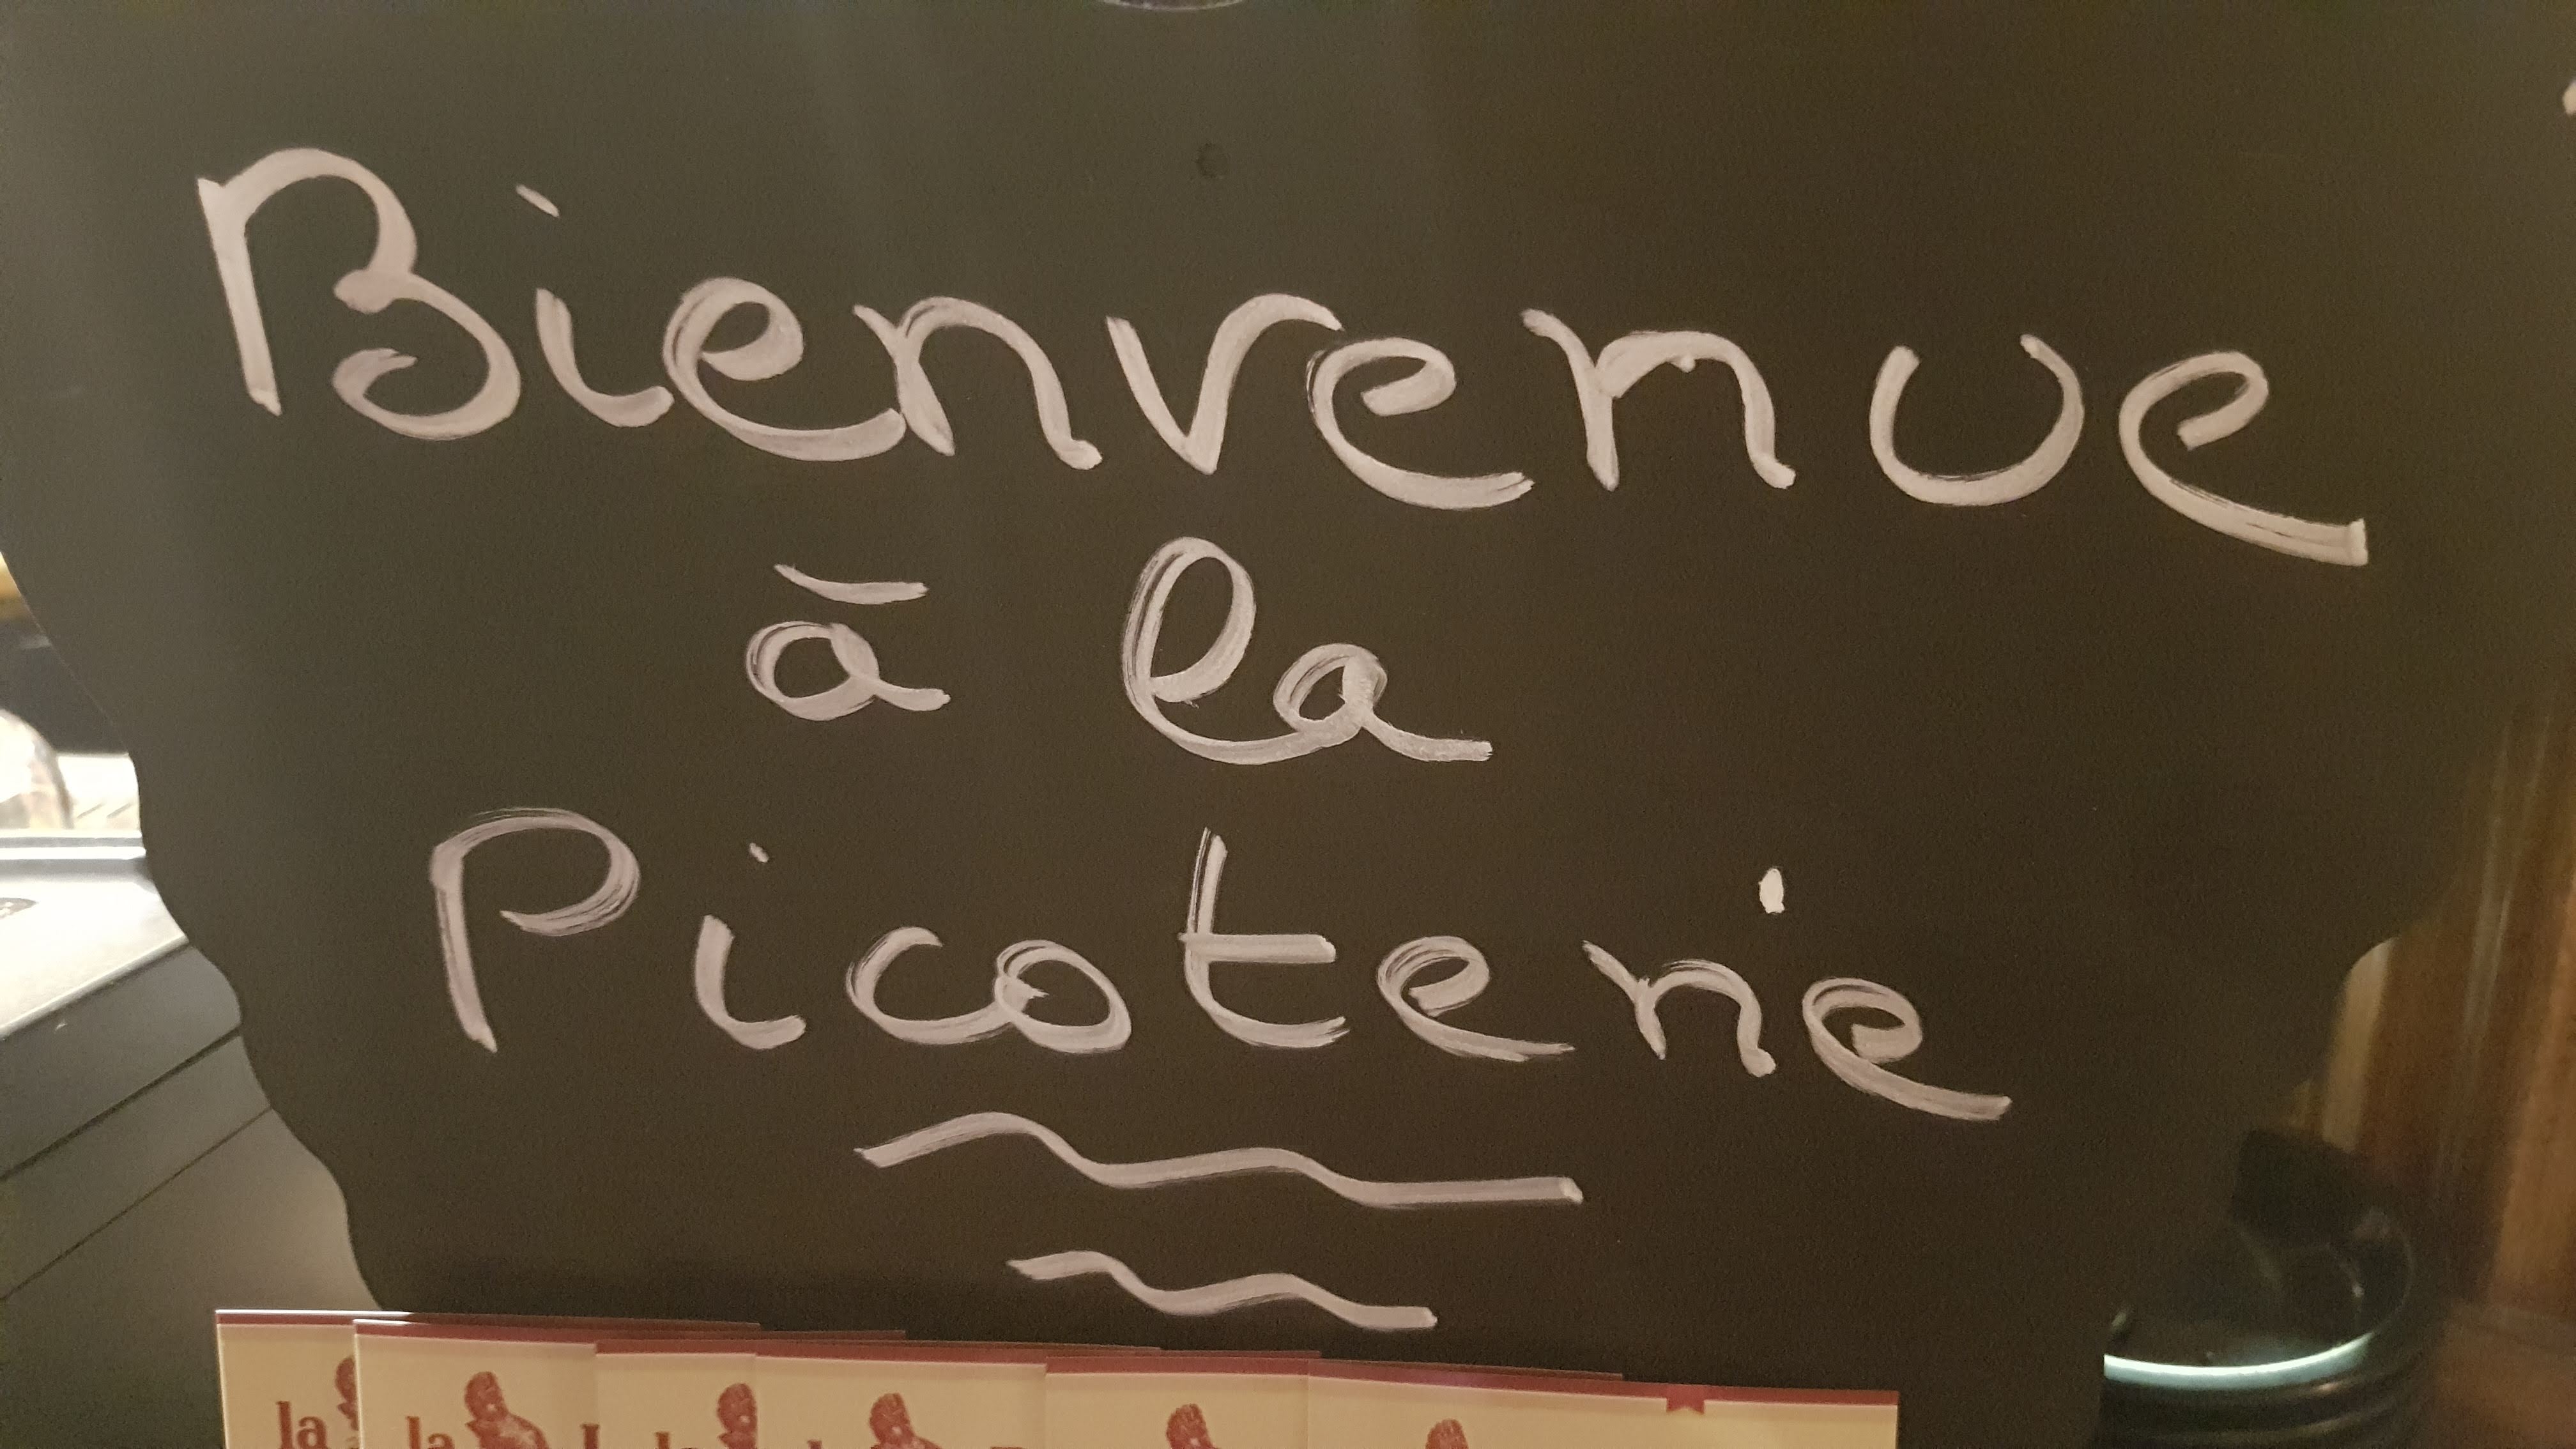 Bienvenue
à la
Picoterie
la
la
la